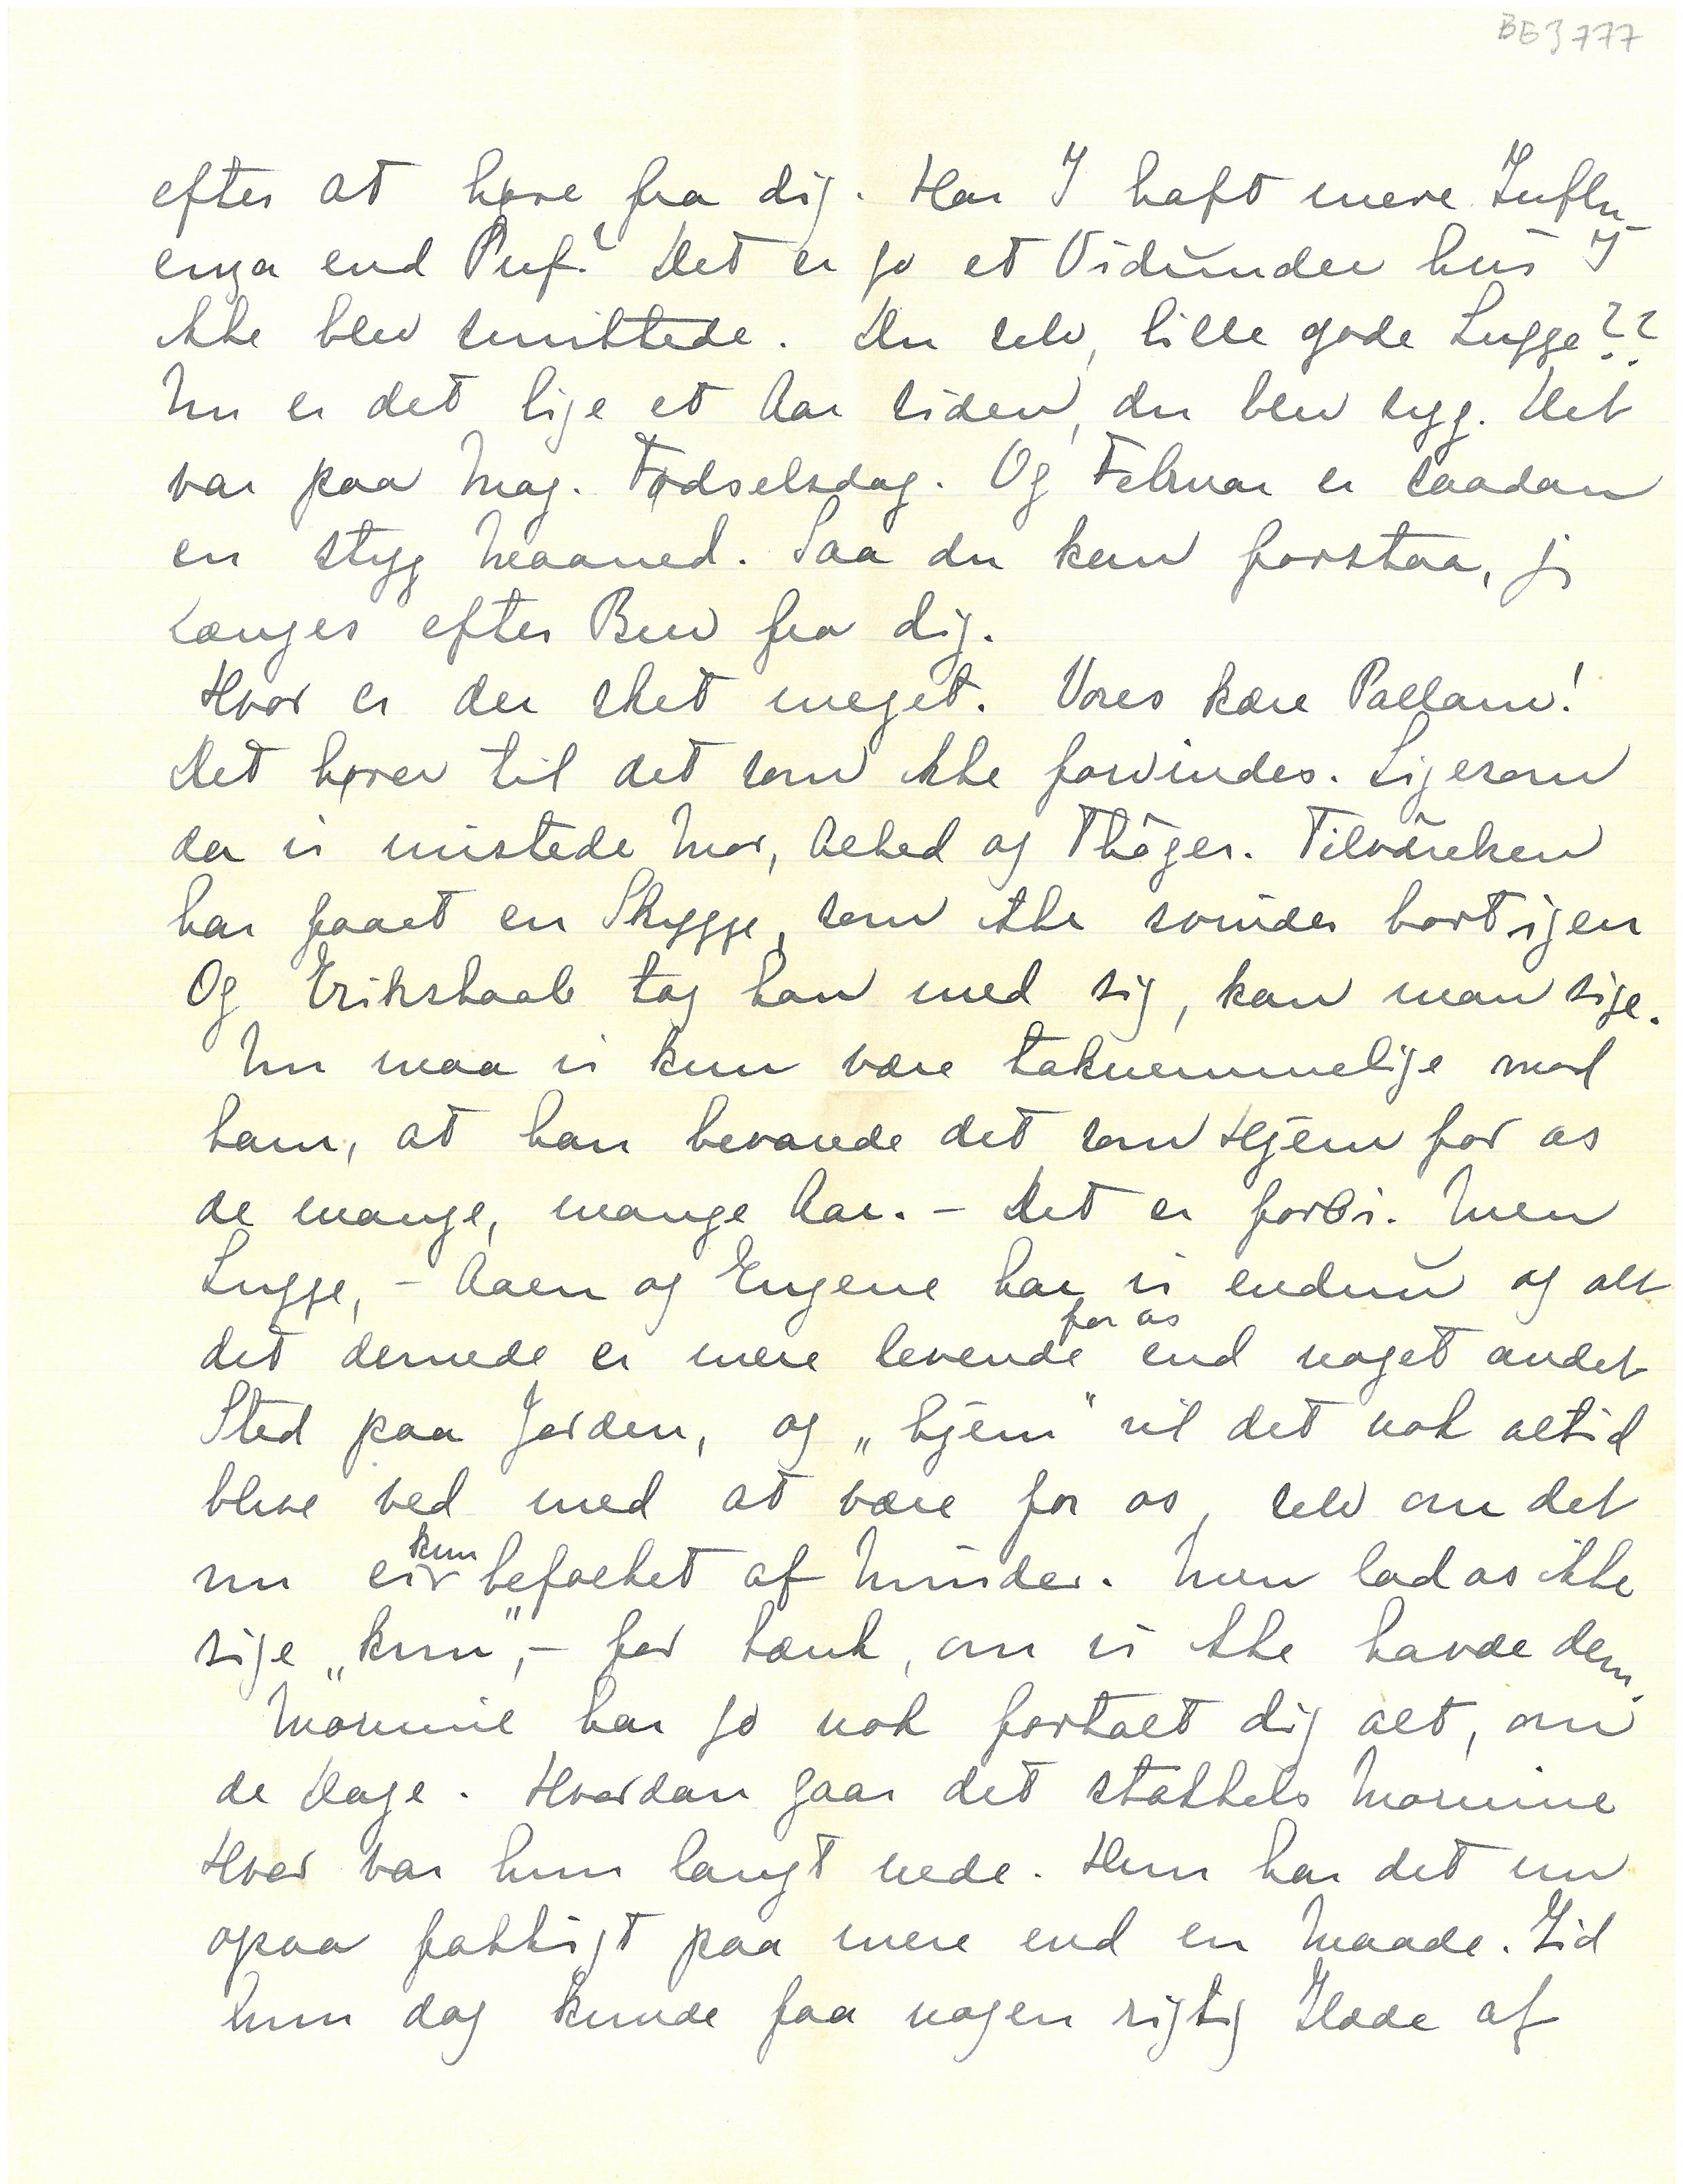 BE3777
efter at høre fra dig. Har I haft mere Influ-
enza end Puf? Det er jo et Vidunder hvis I
ikke blev smittede. Du selv, lille gode Lugge??
Nu er det lige et Aar siden, du blev syg. Det
var paa Mag. Fødselsdag. Og Februar er saadan
en styg Maaned. Saa du kan forstaa, jeg
længes efter Brev fra dig.
Hvor er der sket meget. Vores kære Pallam!
Det hører til det som ikke forvindes. Ligesom
da vi mistede Mor, Alhed og Thøger. Tilværelsen
har faaet en Skygge, som ikke svinder bort igen
Og Erikshaab tog han med sig, kan man sige.
Nu maa vi kun være taknemmelige mod
ham, at han bevarede det som Hjem for os
de mange, mange Aar. – Det er forbi. Men
Lugge, – Aaen og Engene har vi endnu og alt
det dernede er mere levende for os end noget andet
Sted paa Jorden, og „hjem" vil det nok altid
blive ved med at være for os, selv om det
nu er kun befolket af Minder. Men lad os ikke
sige „kun", – for tænk, om vi ikke havde dem.
Mornine har jo nok fortalt dig alt, om
de Dage. Hvordan gaar det stakkels Mornine
Hvor var hun langt nede. Hun har det nu
ogsaa fattigt paa mere end en Maade. Gid
hun dog kunde faa nogen rigtig Glæde af